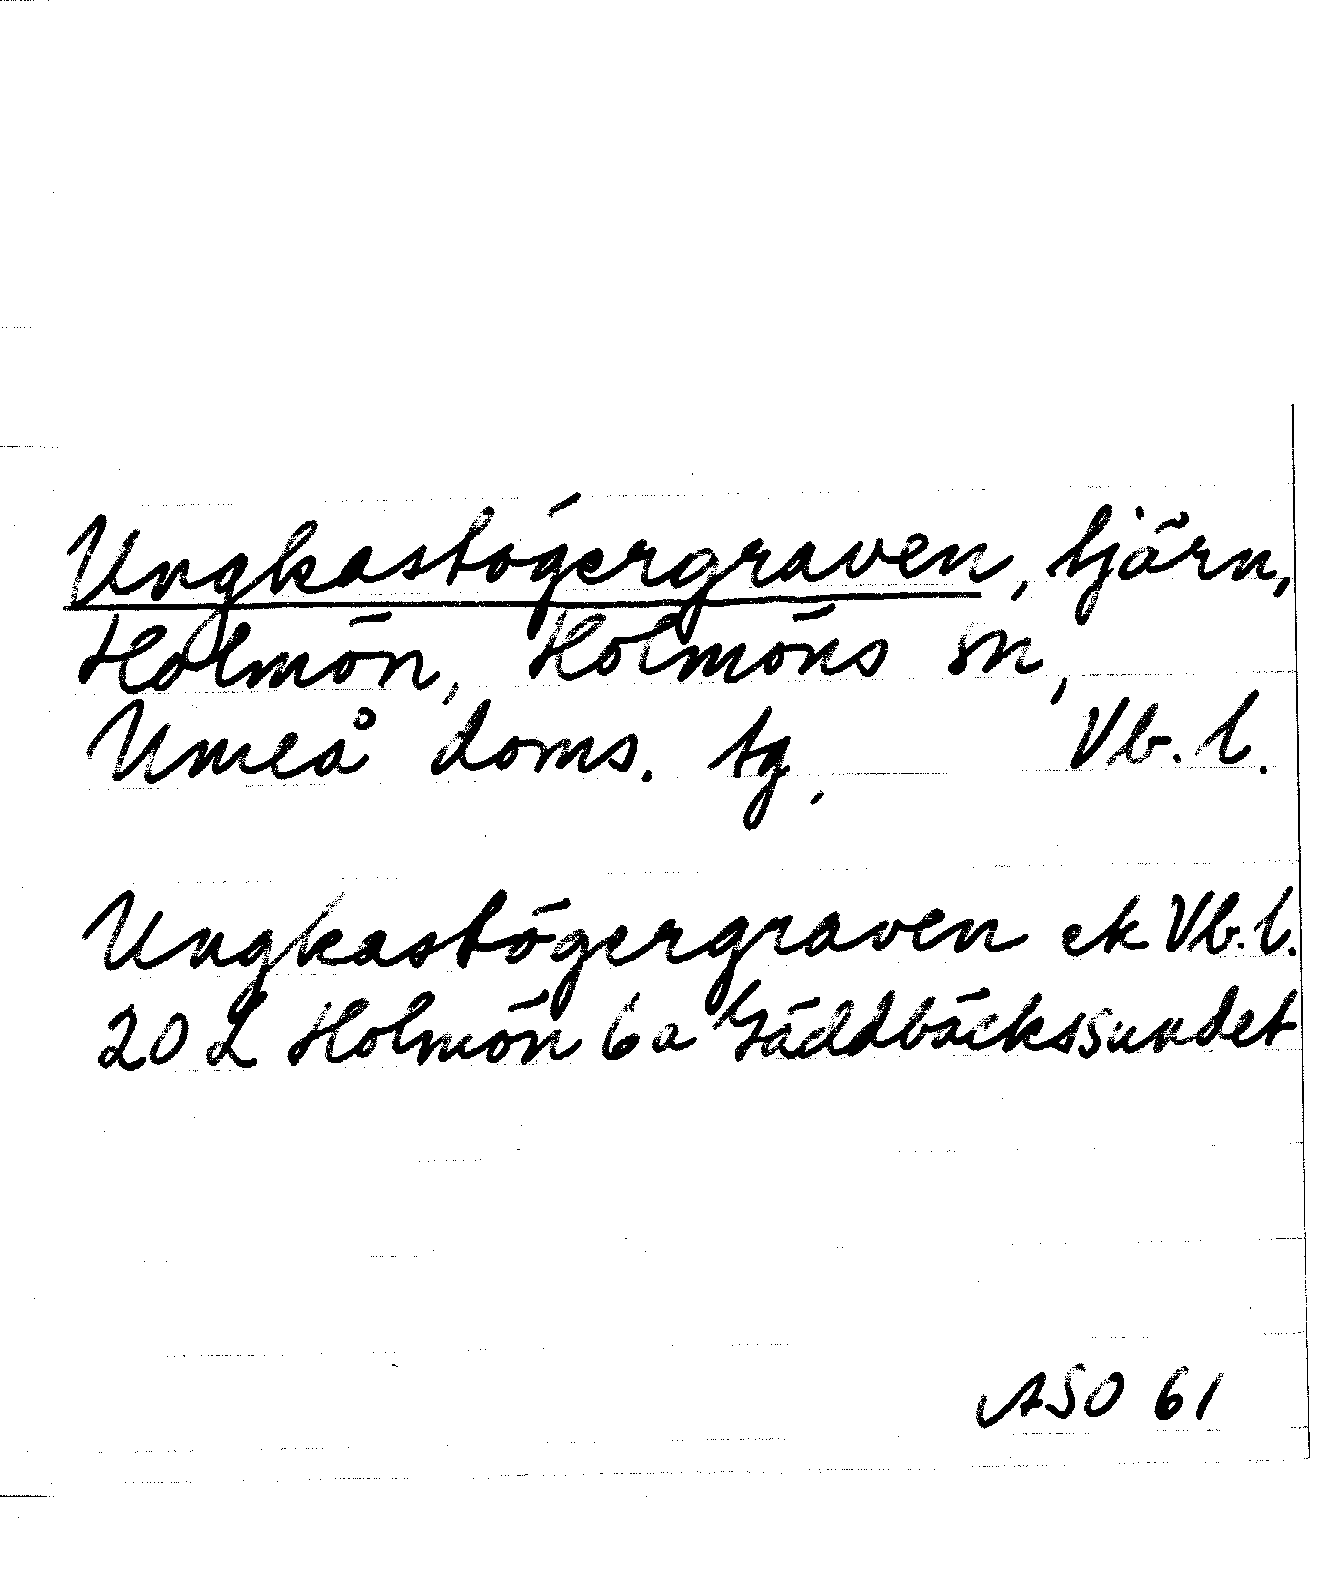 Ungkastögergraven, tjärn,
Holmön, Holmöns sn,
Umeå doms. tg, Vb. l.
Ungkastögergraven ek Vb. l.
20 L Holmön 6 a Gäddbäckssundet
ASO 61